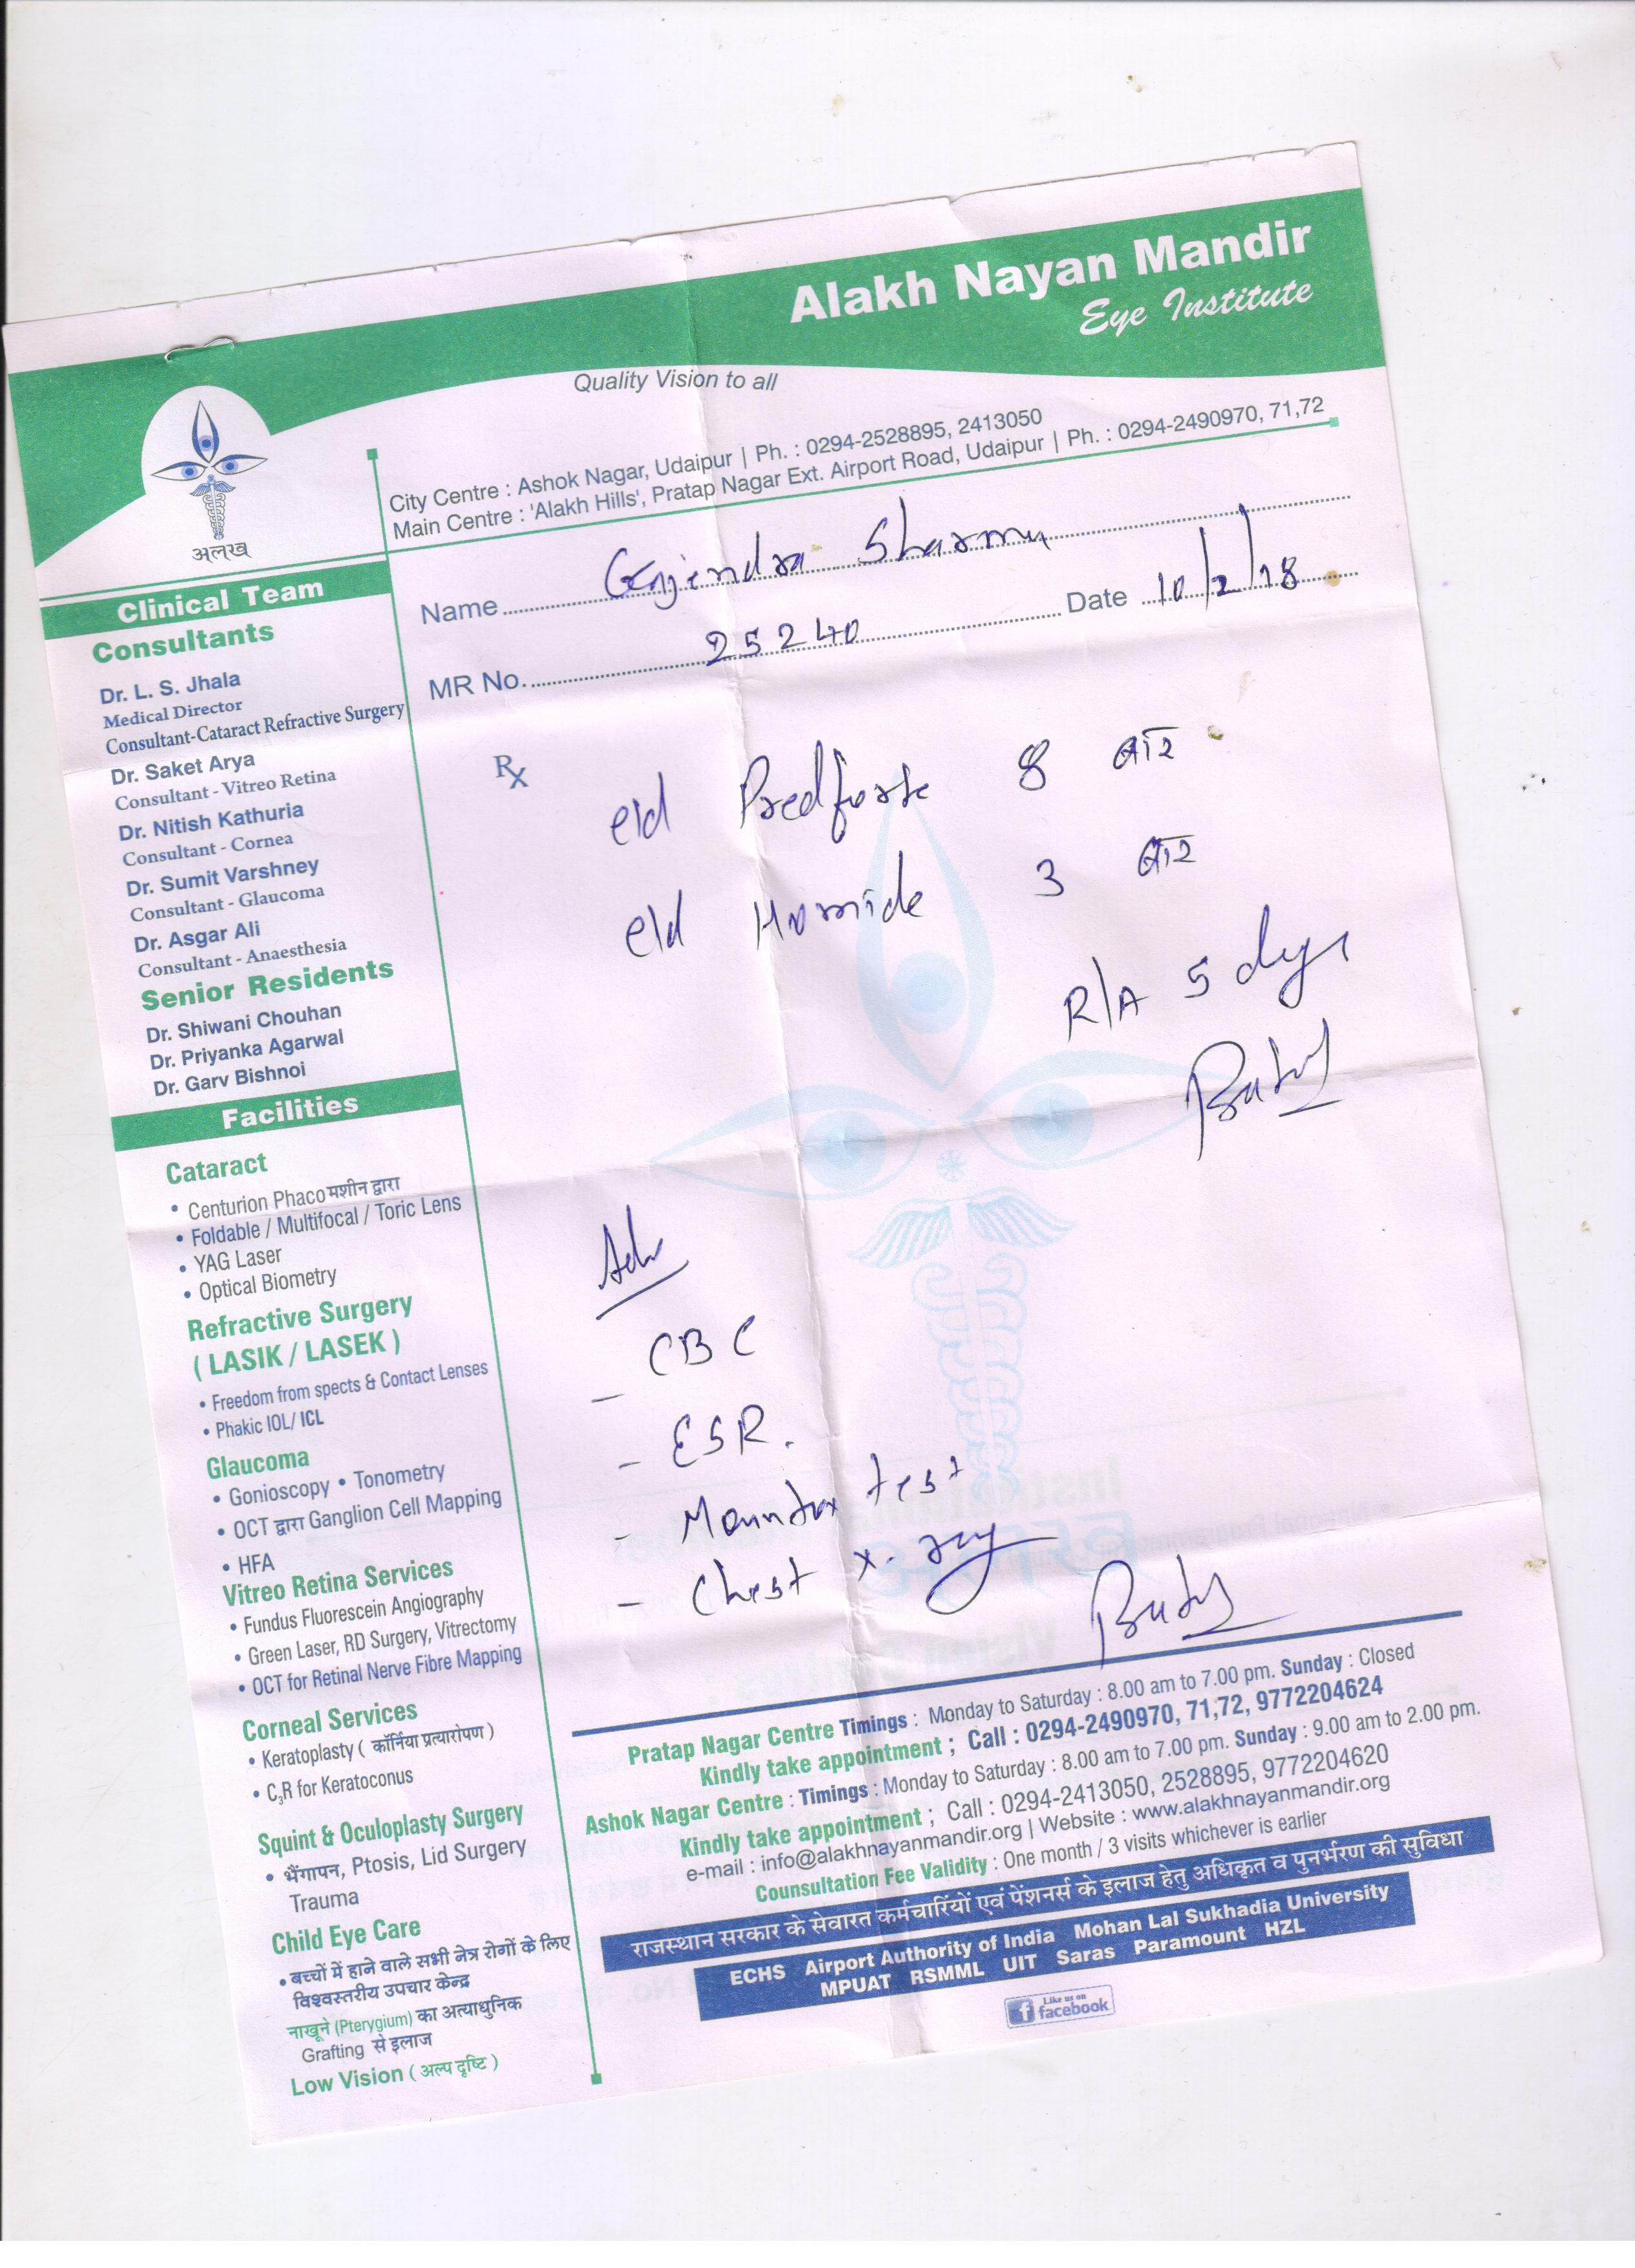 Alakh Nayan Mandir
Eye Institute
Quality Vision to all
अलख
City Centre : Ashok Nagar, Udaipur | Ph. : 0294-2528895, 2413050
Main Centre : 'Alakh Hills', Pratap Nagar Ext. Airport Road, Udaipur | Ph. : 0294-2490970, 71,72
Name Gajendra Sharma
MR No. 25240 Date 10/2/18
Clinical Team
Consultants
Dr. L. S. Jhala
Medical Director
Consultant-Cataract Refractive Surgery
Dr. Saket Arya
Consultant - Vitreo Retina
Dr. Nitish Kathuria
Consultant - Cornea
Dr. Sumit Varshney
Consultant - Glaucoma
Dr. Asgar Ali
Consultant - Anaesthesia
Senior Residents
Dr. Shiwani Chouhan
Dr. Priyanka Agarwal
Dr. Garv Bishnoi
Facilities
Cataract
• Centurion Phaco मशीन द्वारा
• Foldable / Multifocal / Toric Lens
• YAG Laser
• Optical Biometry
Refractive Surgery
( LASIK / LASEK )
• Freedom from spects & Contact Lenses
• Phakic IOL/ ICL
Glaucoma
• Gonioscopy • Tonometry
• OCT द्वारा Ganglion Cell Mapping
• HFA
Vitreo Retina Services
• Fundus Fluorescein Angiography
• Green Laser, RD Surgery, Vitrectomy
• OCT for Retinal Nerve Fibre Mapping
Corneal Services
• Keratoplasty ( कॉर्निया प्रत्यारोपण )
• C3R for Keratoconus
Squint & Oculoplasty Surgery
• भैंगापन, Ptosis, Lid Surgery
Trauma
Child Eye Care
• बच्चों में हाने वाले सभी नेत्र रोगों के लिए
विश्वस्तरीय उपचार केन्द्र
नाखूने (Pterygium) का अत्याधुनिक
Grafting से इलाज
Low Vision ( अल्प दृष्टि )
Rx
e/d Predforte 8 बार
e/d Homide 3 बार
R/A 5 days
Adv
- CBC
- ESR.
- Mountox test
- Chest x-ray
Pratap Nagar Centre Timings : Monday to Saturday : 8.00 am to 7.00 pm. Sunday : Closed
Kindly take appointment ; Call : 0294-2490970, 71,72, 9772204624
Ashok Nagar Centre : Timings : Monday to Saturday : 8.00 am to 7.00 pm. Sunday : 9.00 am to 2.00 pm.
Kindly take appointment ; Call : 0294-2413050, 2528895, 9772204620
e-mail : info@alakhnayanmandir.org | Website : www.alakhnayanmandir.org
Counsultation Fee Validity : One month / 3 visits whichever is earlier
राजस्थान सरकार के सेवारत कर्मचारियों एवं पेंशनर्स के इलाज हेतु अधिकृत व पुनर्भरण की सुविधा
ECHS Airport Authority of India Mohan Lal Sukhadia University
MPUAT RSMML UIT Saras Paramount HZL
Like us on
facebook